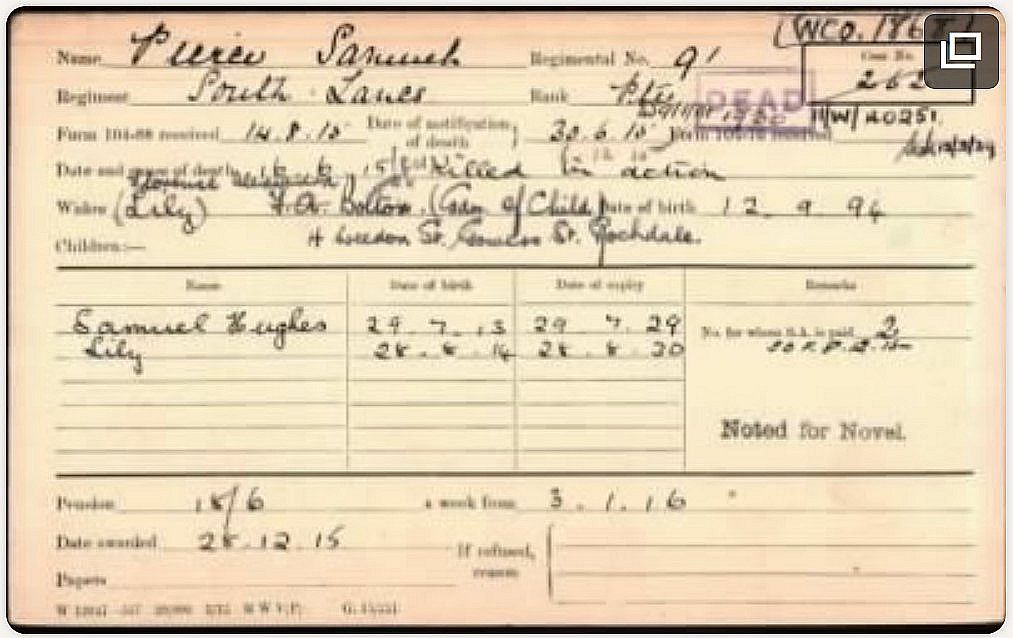 (WCO. 1868)
Name Pierce Samuel Regimental No. 91
Case No.
262
Regiment South Lancs Rank Pte
DEAD
11/W/20251.
Form 104-88 received 14.8.15 Date of notification of death 30.6.15
Date and cause of death 16.6.15 Killed in action
Widow (Lily) F.A. Bolton (Gdn of Child) Date of birth 12.9.94
4 Weedon St. St. Rochdale.
Children:—
Name Date of birth Date of expiry Remarks
Samuel Hughes 29.7.13 29.7.29 No. for whom S.A. is paid 2
Lily 28.8.14 28.8.30
Noted for Novel.
Pension 18/6 a week from 3.1.16
Date awarded 28.12.15 If refused, reason
Papers